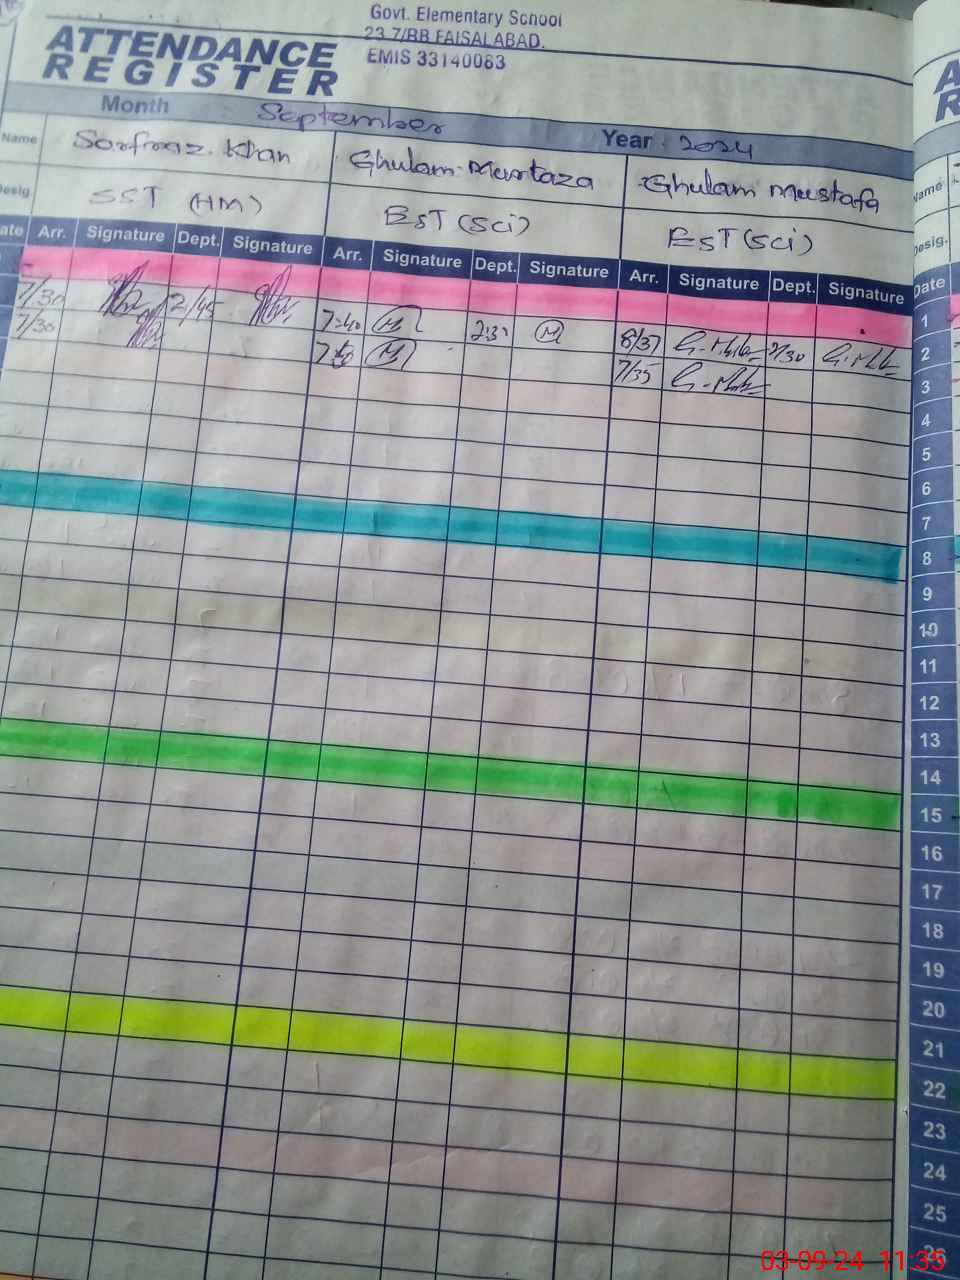 Govt. Elementary School
23 7/RB FAISALABAD.
EMIS 33140063
ATTENDANCE
REGISTER
Month September Year 2024
Name Sarfraz Khan Ghulam Murtaza Ghulam Mustafa
Desig SST (HM) EST (Sci) EST (Sci)
ate Arr. Signature Dept. Signature Arr. Signature Dept. Signature Arr. Signature Dept. Signature
7/30 2/45 7:40 M M 8/37
7/30 M 7/35
A
R
Name
Desig.
Date
1
2
3
4
5
6
7
8
9
10
11
12
13
14
15
16
17
18
19
20
21
22
23
24
25
26
03-09-24 11:35